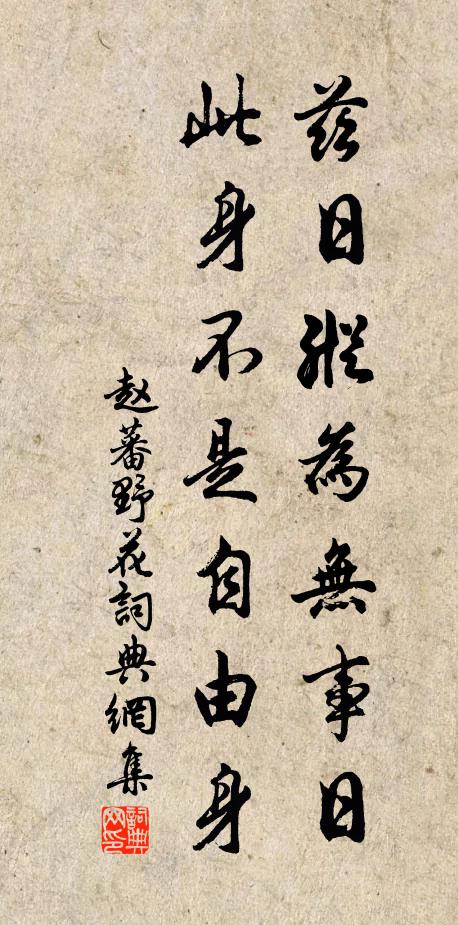 茲日縱為無事日
此身不是自由身
赵蕃野花詞典網集
詞典
网印